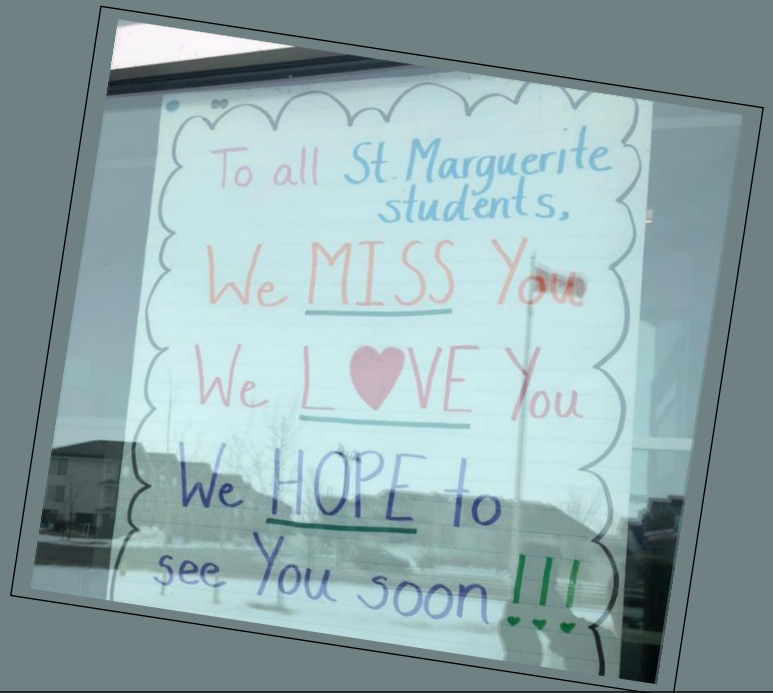 To all St. Marguerite
students,
We MISS You
We L♥VE You
We HOPE to
see You soon!!!